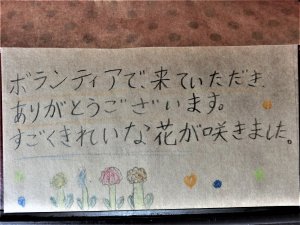 ボランティアで、来ていただき
ありがとうございます。
すごくきれいな花が咲きました。